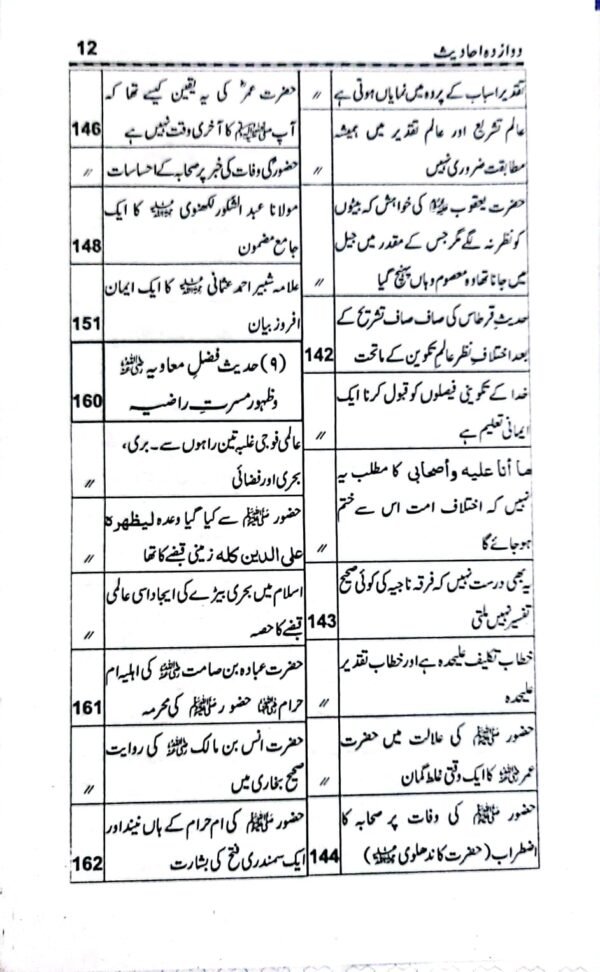 دوازدہ احادیث
12
تقدیر اسباب کے پردہ میں نمایاں ہوتی ہے
〃
عالم تشریع اور عالم تقدیر میں ہمیشہ
مطابقت ضروری نہیں
〃
حضرت یعقوب علیہ السلام کی خواہش کہ بیٹوں
کو نظر نہ لگے مگر جس کے مقدر میں جیل
میں جانا تھا وہ معصوم وہاں پہنچ گیا
〃
حدیث قرطاس کی صاف صاف تشریح کے
بعد اختلافِ نظر عالم تکوین کے ماتحت
142
خدا کے تکوینی فیصلوں کو قبول کرنا ایک
ایمانی تعلیم ہے
〃
ما أنا عليه وأصحابي کا مطلب یہ
نہیں کہ اختلاف امت اس سے ختم
ہو جائے گا
〃
یہ بھی درست نہیں کہ فرقہ ناجیہ کی کوئی صحیح
تفسیر نہیں ملتی
143
خطاب تکلیف علیحدہ ہے اور خطاب تقدیر
علیحدہ
〃
حضور ﷺ کی علالت میں حضرت
عمر رضی اللہ عنہ کا ایک وقتی غلط گمان
〃
حضور ﷺ کی وفات پر صحابہ کا
اضطراب (حضرت کاندھلوی رحمۃ اللہ علیہ)
144
حضرت عمرؓ کی یہ یقین کیسے تھا کہ
آپ ﷺ کا آخری وقت نہیں ہے
146
حضورؐ کی وفات کی خبر پر صحابہ کے احساسات
〃
مولانا عبد الشکور لکھنوی رحمۃ اللہ علیہ کا ایک
جامع مضمون
148
علامہ شبیر احمد عثمانی رحمۃ اللہ علیہ کا ایک ایمان
افروز بیان
151
(۹) حدیث فضلِ معاویہ رضی اللہ عنہ
وظہور مسرتِ راضیہ
160
عالمی فوجی غلبہ تین راہوں سے۔ بری،
بحری اور فضائی
〃
حضور ﷺ سے کیا گیا وعدہ لیظهره
علی الدین کله زمینی قبضے کا تھا
〃
اسلام میں بحری بیڑے کی ایجاد اسی عالمی
قبضے کا حصہ
〃
حضرت عبادہ بن صامت رضی اللہ عنہ کی اہلیہ ام
حرام رضی اللہ عنہا حضور ﷺ کی محرمہ
161
حضرت انس بن مالک رضی اللہ عنہ کی روایت
صحیح بخاری میں
〃
حضور ﷺ کی ام حرام کے ہاں نیند اور
ایک سمندری فتح کی بشارت
162